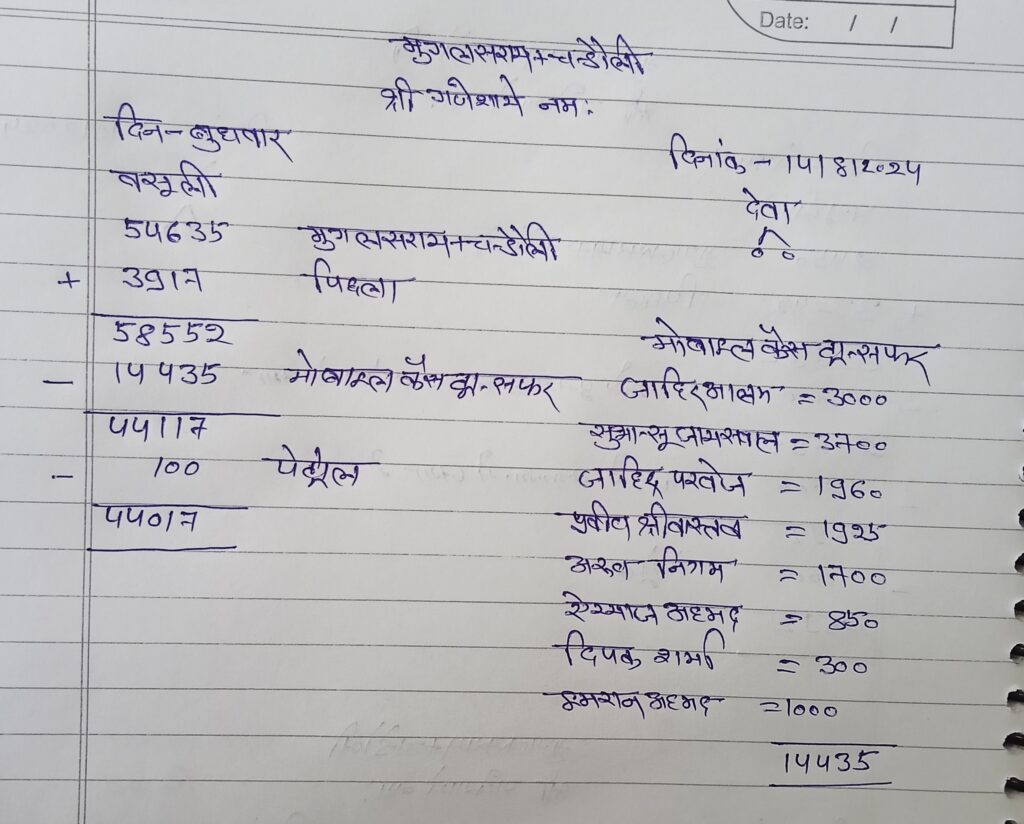 Date: / /
मुगलसराय+चन्डौली
श्री गणेशाये नमः
दिन-बुधवार
दिनांक - 14/8/2024
वसूली
देवा
54635 मुगलसराय+चन्डौली
+ 3917 पिछला
58552
मोबाइल कैस ट्रान्सफर
- 14435 मोबाइल कैस ट्रान्सफर
जाहिर आलम = 3000
44117
सुभान्सू जायसवाल = 3700
- 100 पेट्रोल
जाहिद परवेज = 1960
44017
प्रवीण श्रीवास्तव = 1925
अरुण निगम = 1700
ऐय्याज अहमद = 850
दिपक शर्मा = 300
इमरान अहमद = 1000
14435